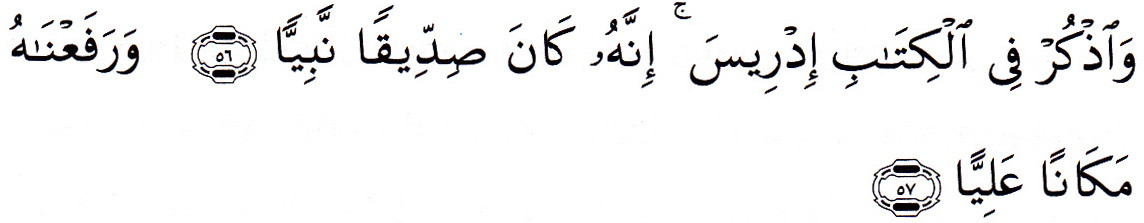 وَٱذۡكُرۡ فِى ٱلۡكِتَـٰبِ إِدۡرِيسَ‌ۚ إِنَّهُۥ كَانَ صِدِّيقًا نَّبِيًّا ۝٥٦ وَرَفَعۡنَـٰهُ
مَكَانًا عَلِيًّا ۝٥٧